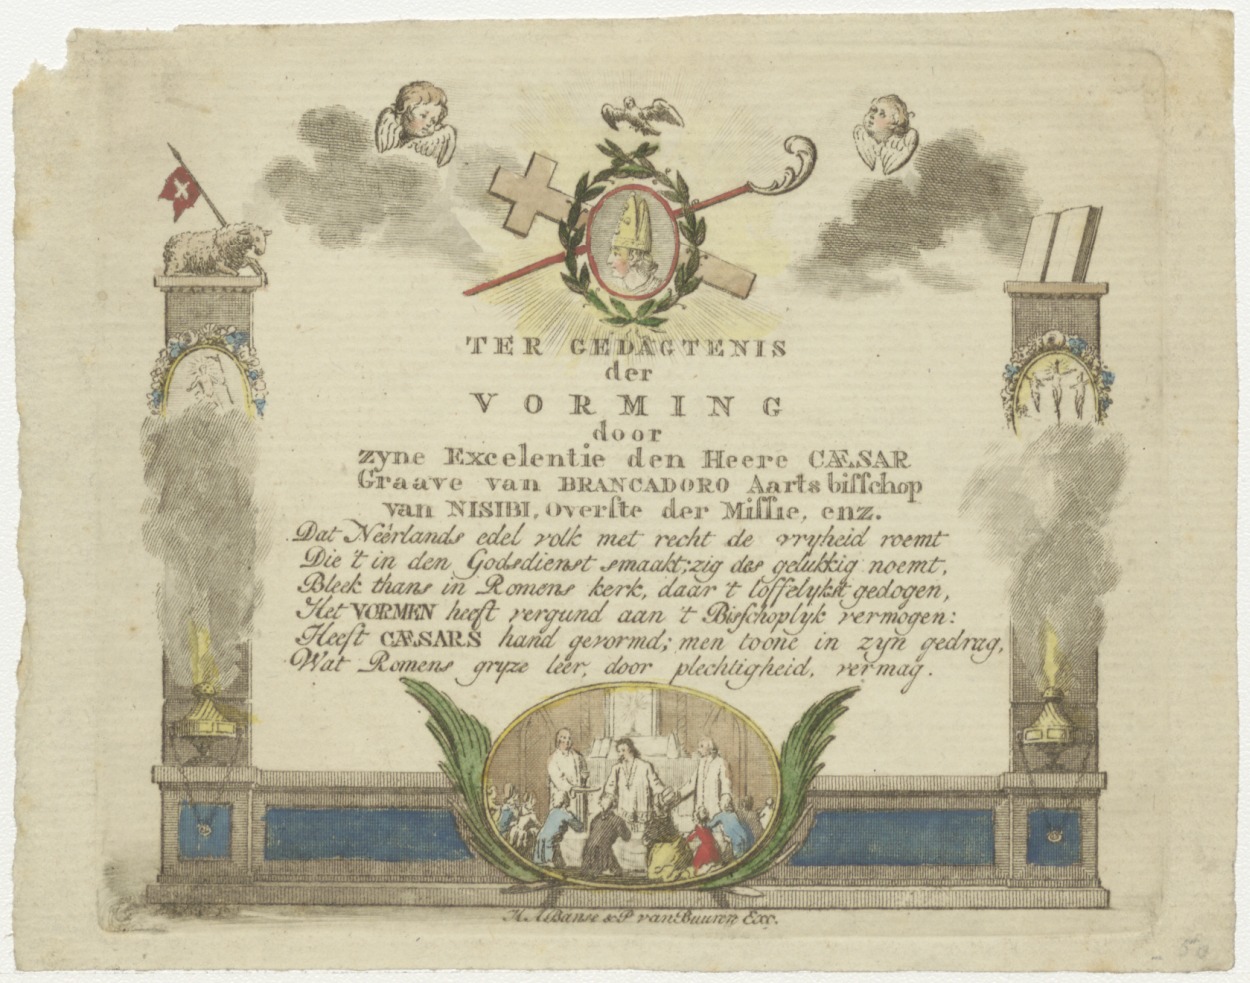 TER GEDAGTENIS
der
VORMING
door
zyne Excelentie den Heere CÆSAR
Graave van BRANCADORO Aartsbisschop
van NISIBI, overste der Missie, enz.
Dat Neêrlands edel volk met recht de vryheid roemt
Die 't in den Godsdienst smaakt; zig des gelukkig noemt,
Bleek thans in Romens kerk, daar 't loffelykst gedogen,
Het VORMEN heeft vergund aan 't Bisschoplyk vermogen:
Heeft CÆSARS hand gevormd; men toone in zyn gedrag,
Wat Romens gryze leer, door plechtigheid, vermag.
H. A. Banse & P van Buuren Exc.
50